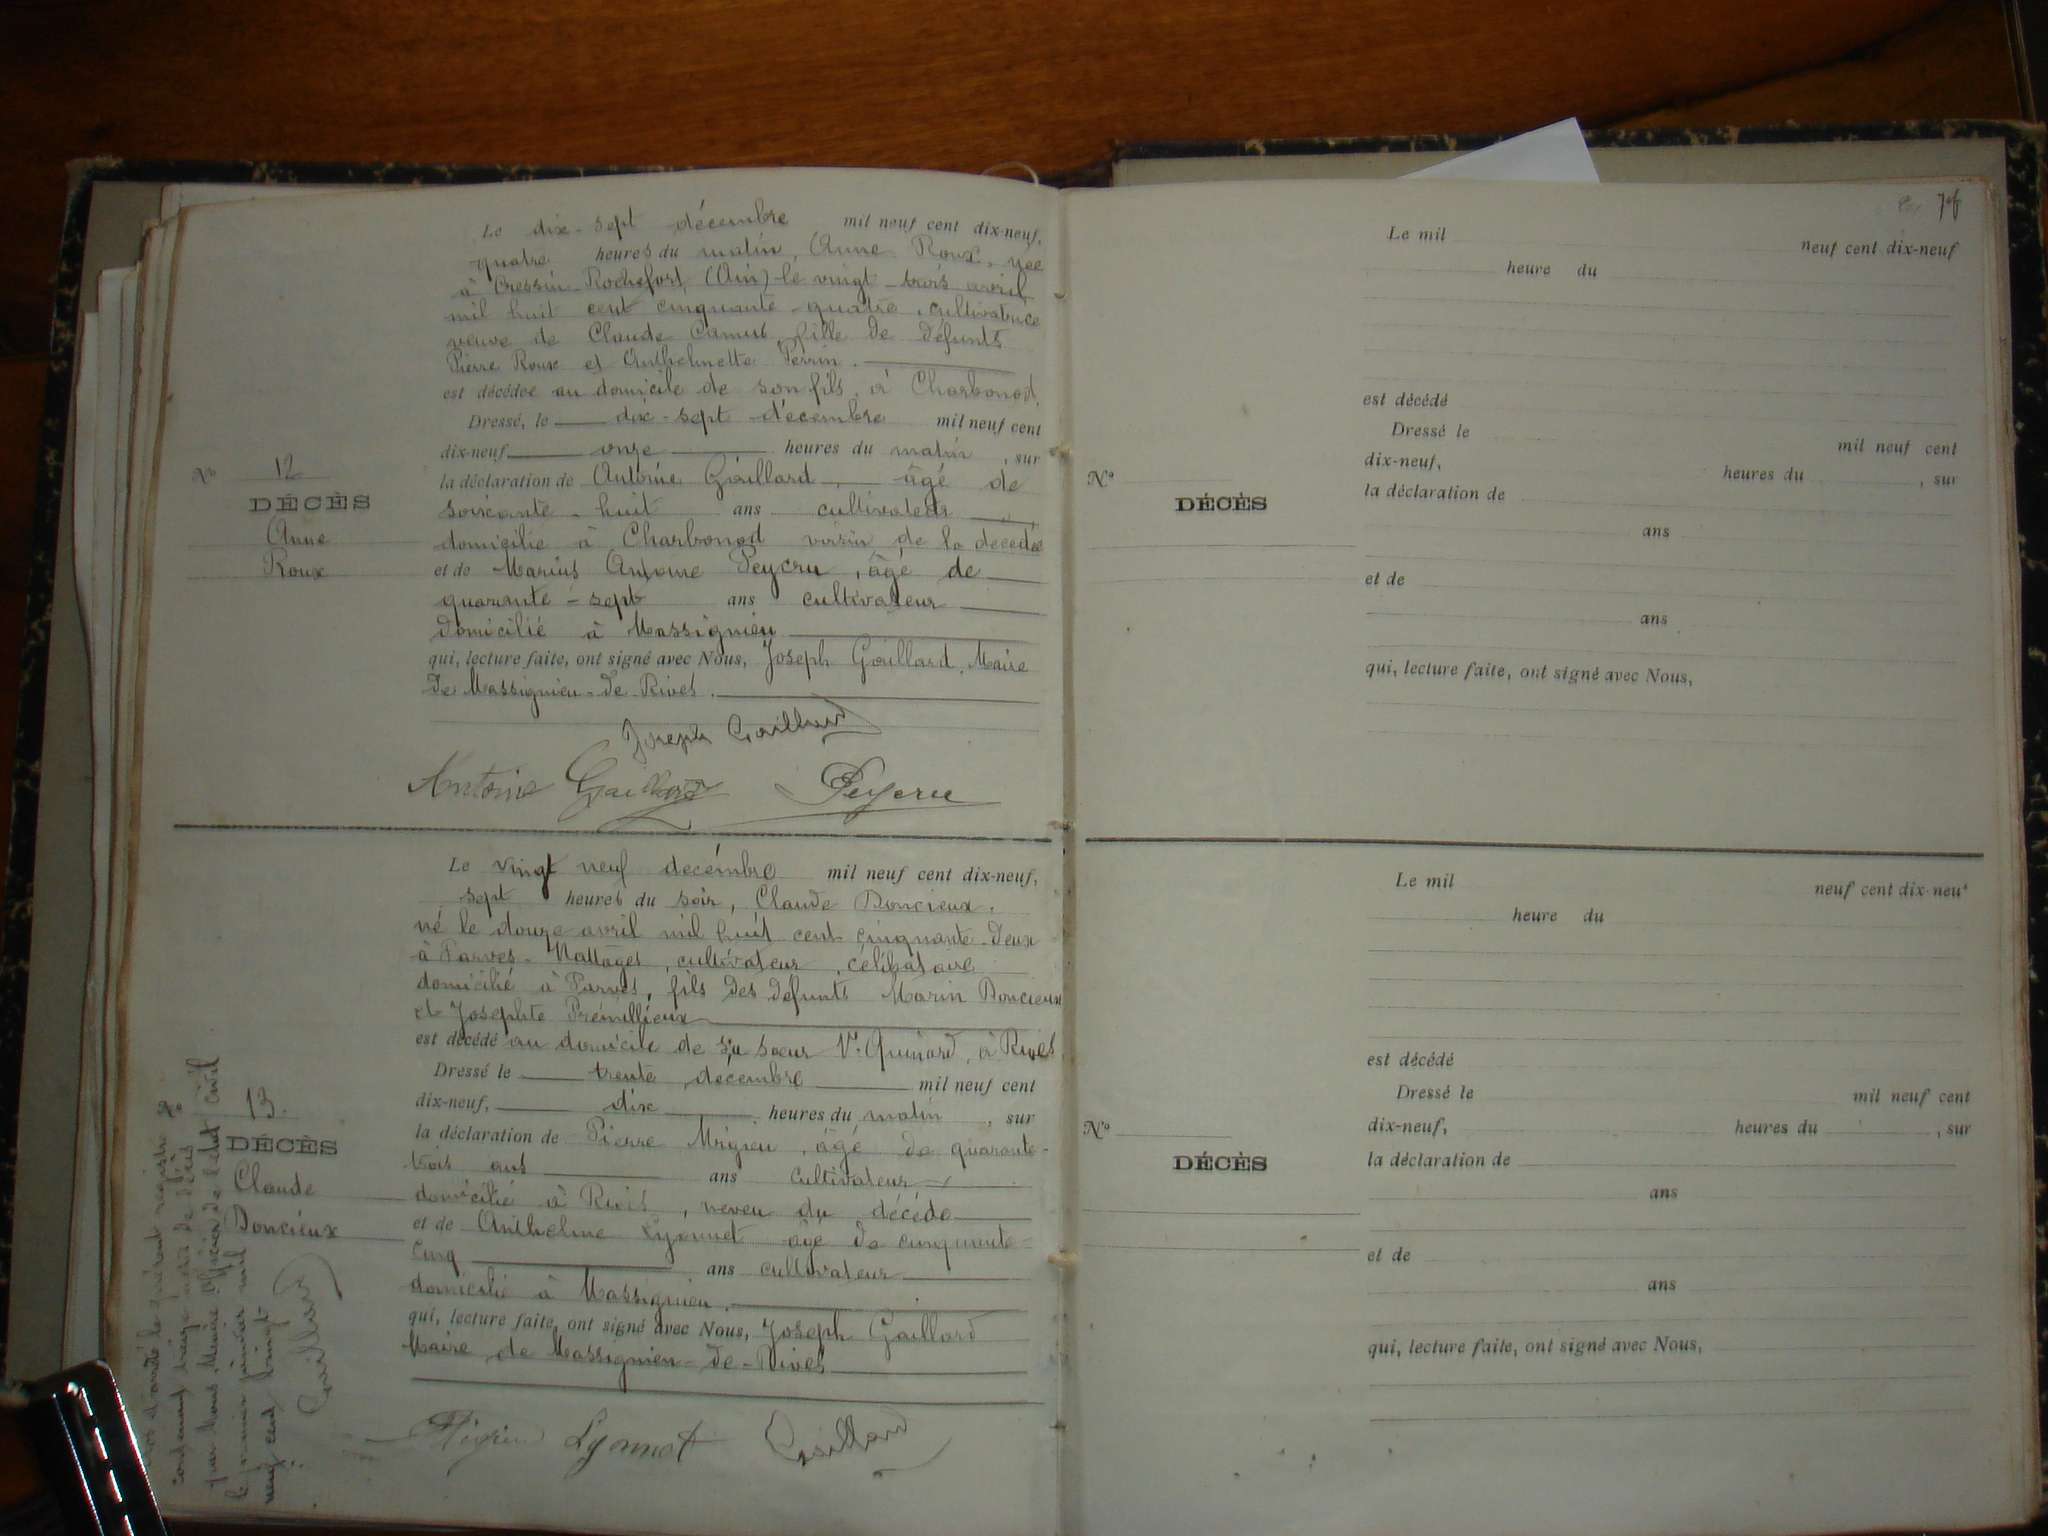 Le dix-sept décembre mil neuf cent dix-neuf,
quatre heures du matin, Anne Roux, née
à Cressin-Rochefort (Ain) le vingt-trois avril
mil huit cent cinquante-quatre, cultivatrice
veuve de Claude Camus, fille de défunts
Pierre Roux et Anthelmette Perrin.
est décédée au domicile de son fils, à Charbonod.
Dressé, le dix-sept décembre mil neuf cent
dix-neuf onze heures du matin, sur
No 12
la déclaration de Antoine Gaillard, âgé de
DÉCÈS
soixante-huit ans cultivateur
Anne
domicilié à Charbonod voisin de la décédée
Roux
et de Marius Antoine Peycru, âgé de
quarante-sept ans cultivateur
domicilié à Massignieu
qui, lecture faite, ont signé avec Nous, Joseph Gaillard, Maire
de Massignieu-de-Rives.
Joseph Gaillard
Antoine Gaillard Peycru
Le vingt neuf decémbre mil neuf cent dix-neuf,
sept heures du soir, Claude Doncieux,
né le douze avril mil huit cent cinquante-deux
à Parves-Nattages, cultivateur, célibataire
domicilié à Parves, fils des défunts Marin Doncieux
et Josephte Prémillieux
est décédé au domicile de sa sœur Ve Quinard, à Rives
Dressé le trente décembre mil neuf cent
dix-neuf, dix heures du matin, sur
No 13.
la déclaration de Pierre Migieu, âgé de quarante-
DÉCÈS
trois ans ans cultivateur
Claude
domicilié à Rives, neveu du décédé
Doncieux
et de Anthelme Lyonnet âgé de cinquante-
cinq ans cultivateur
domicilié à Massignieu.
qui, lecture faite, ont signé avec Nous, Joseph Gaillard
Maire de Massignieu-de-Rives
Migieu Lyonnet Gaillard
Clos et arrêté le présent registre
contenant treize actes de décès
par Nous, Maire Officier de l'état civil
le premier janvier mil
neuf cent vingt
Gaillard
Le mil neuf cent dix-neuf
heure du
est décédé
Dressé le mil neuf cent
dix-neuf, heures du , sur
No
la déclaration de
DÉCÈS
ans
et de
ans
qui, lecture faite, ont signé avec Nous,
Le mil neuf cent dix-neuf
heure du
est décédé
Dressé le mil neuf cent
dix-neuf, heures du , sur
No
la déclaration de
DÉCÈS
ans
et de
ans
qui, lecture faite, ont signé avec Nous,